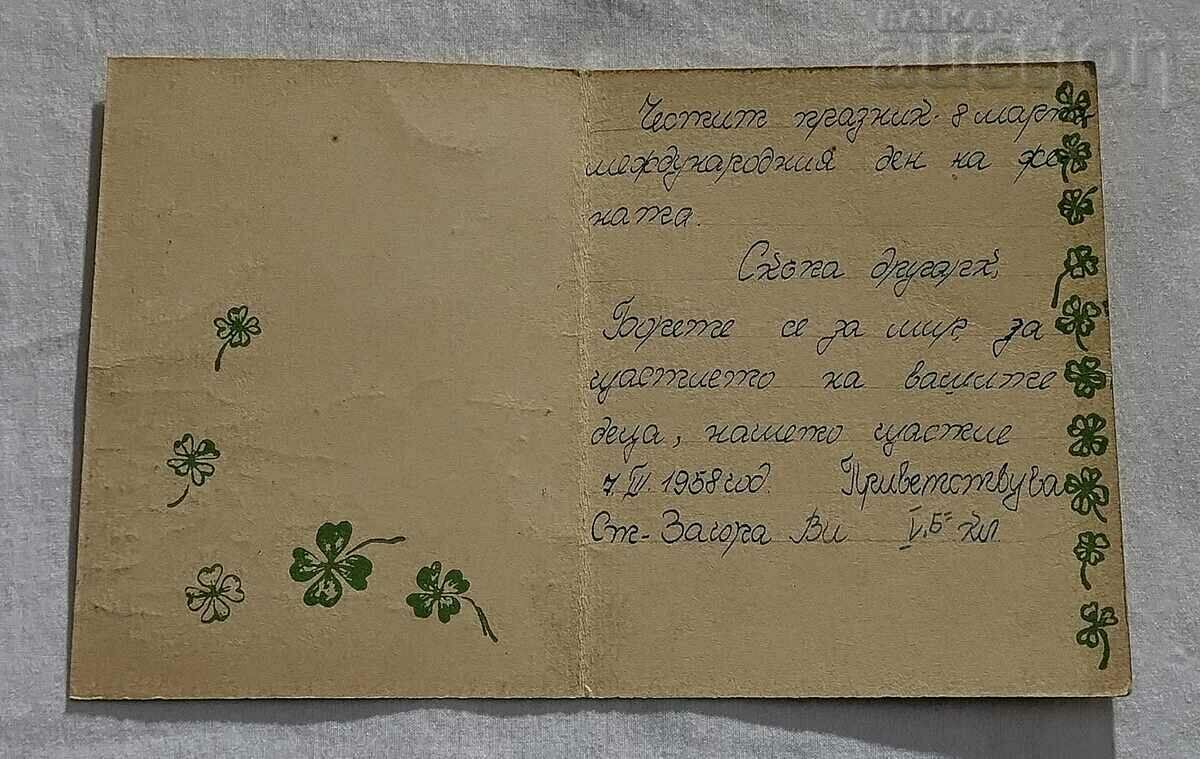 Честит празник 8 март,
международния ден на же
ната.
Скъпа другарк,
Борете се за мир, за
щастието на вашите
деца, нашето щастие
7.III.1958 год. Приветствува
Ст-Загора Ви V "Б" кл
auction